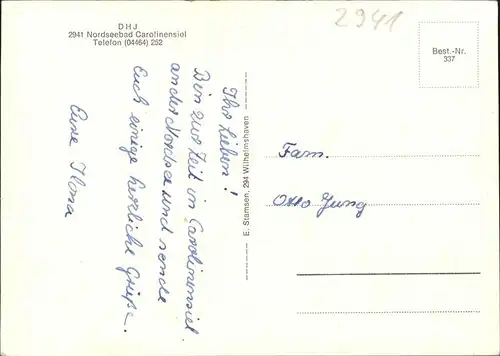 DHJ
2941 Nordseebad Carolinensiel
Telefon (04464) 252
2941
Best.-Nr.
337
Ihr Lieben!
Bin zur Zeit in Carolinensiel
an der Nordsee und sende
Euch einige herzliche Grüße.
Eure Ilona
E. Stamsen, 294 Wilhelmshaven
Fam.
Otto Jung